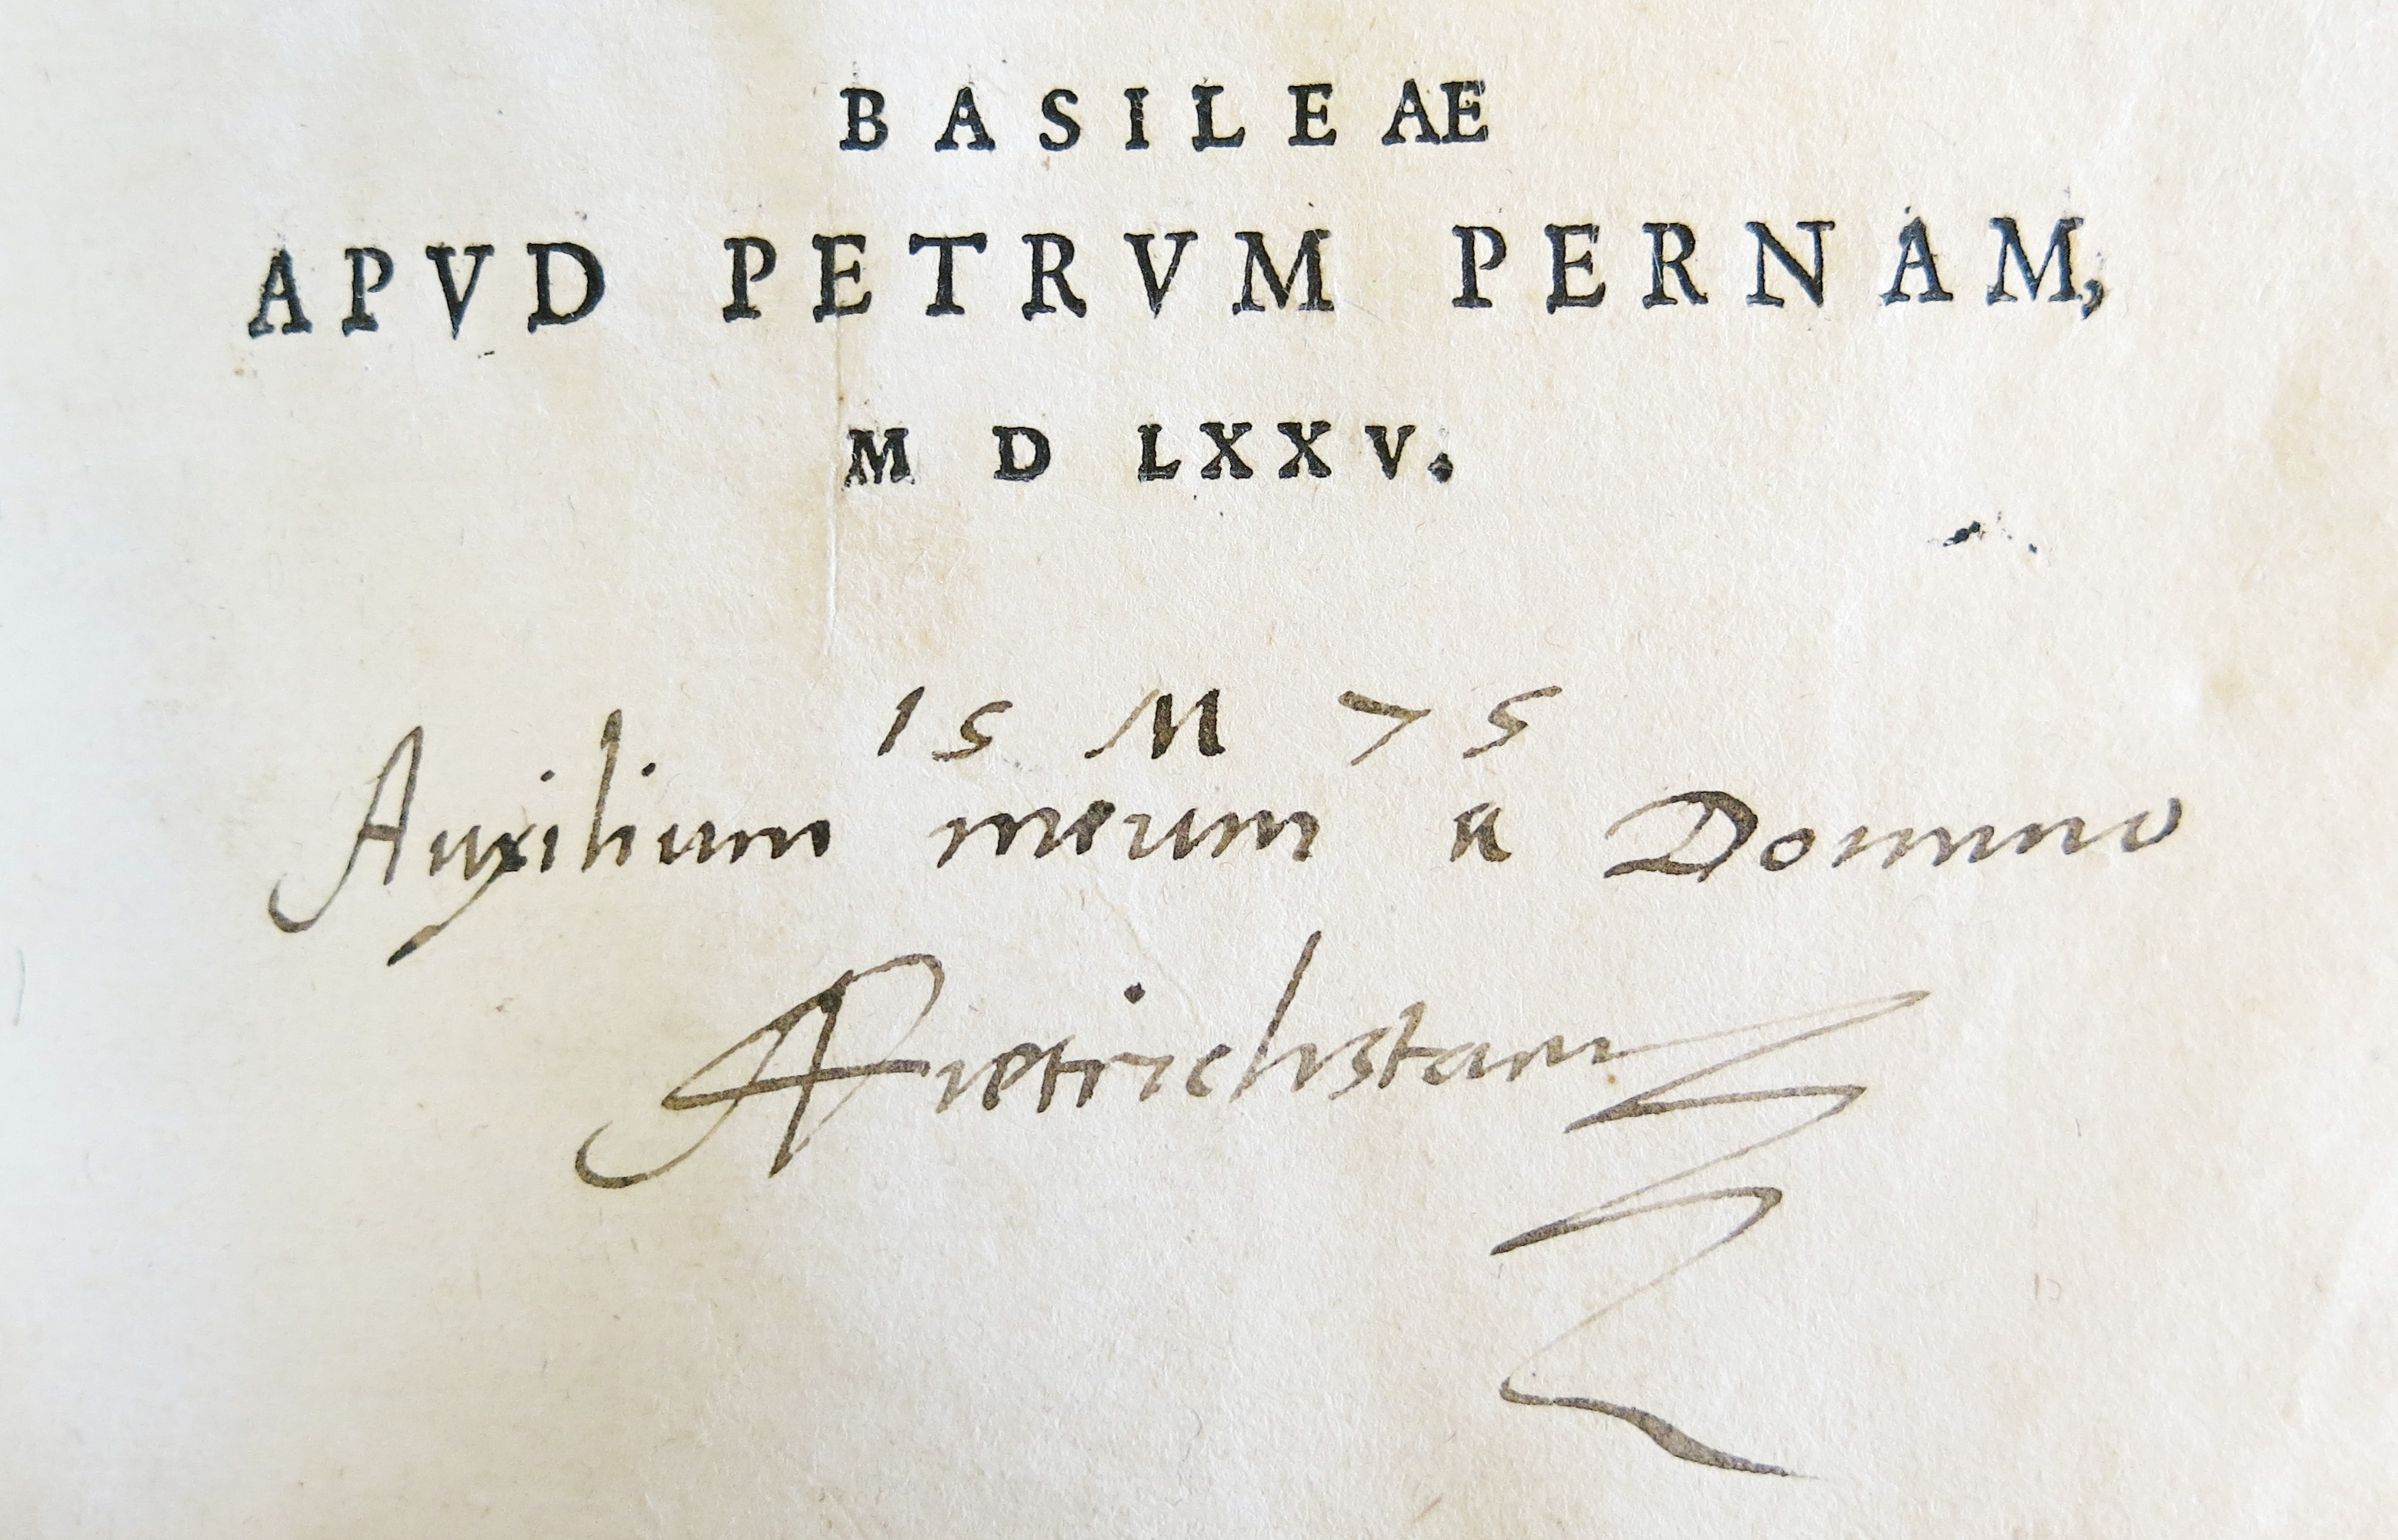 BASILEAE
APVD PETRVM PERNAM,
M D LXXV.
15 M 75
Auxilium meum a Domino
ADietrichstain